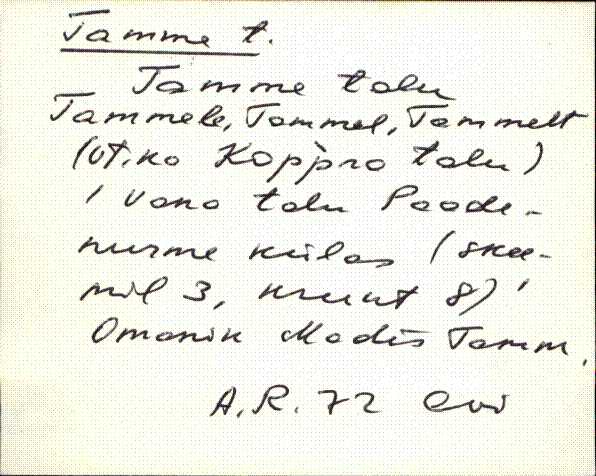 Tamme t.
Tamme talu
Tammele, Tammel, Tammelt
(vt. ka Koppra talu)
' Vana talu Paade-
nurme külas (skee-
mil 3, krunt 8) '
Omanik Madis Tamm.
A.R. 72